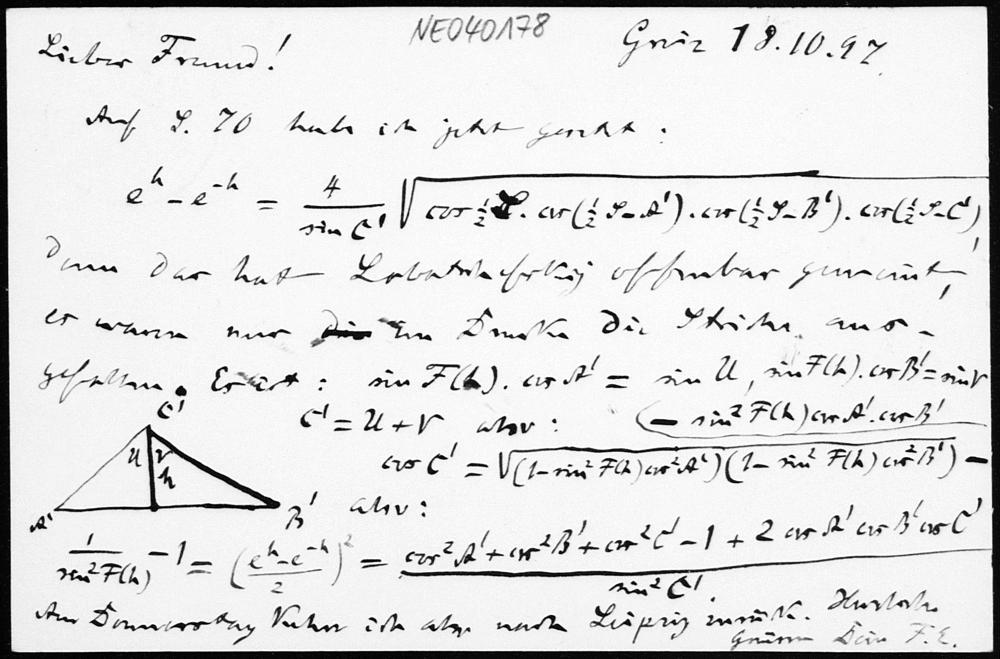 NEO40178
Lieber Freund! Greiz 18.10.97.
Auf S. 70 habe ich jetzt gesetzt:
e^h − e^{−h} = 4/sin C' √(cos ½ S · cos(½ S − A') · cos(½ S − B') · cos(½ S − C'))
Denn das hat Lobatschefskij offenbar gemeint,
es waren nur im Drucke die Striche aus-
gefallen. Es ist: sin F(h) . cos A' = sin U, sin F(h) . cos B' = sin V
C' = U + V also: (− sin² F(h) cos A' . cos B'
cos C' = √((1 − sin² F(h) cos² A')(1 − sin² F(h) cos² B')) −
C'
U V
h
A' B'
also:
1/sin² F(h) − 1 = ((e^h − e^{−h})/2)² = (cos² A' + cos² B' + cos² C' − 1 + 2 cos A' cos B' cos C')/sin² C'.
Am Donnerstag kehre ich also nach Leipzig zurück. Herzliche
Grüsse Dein F. E.